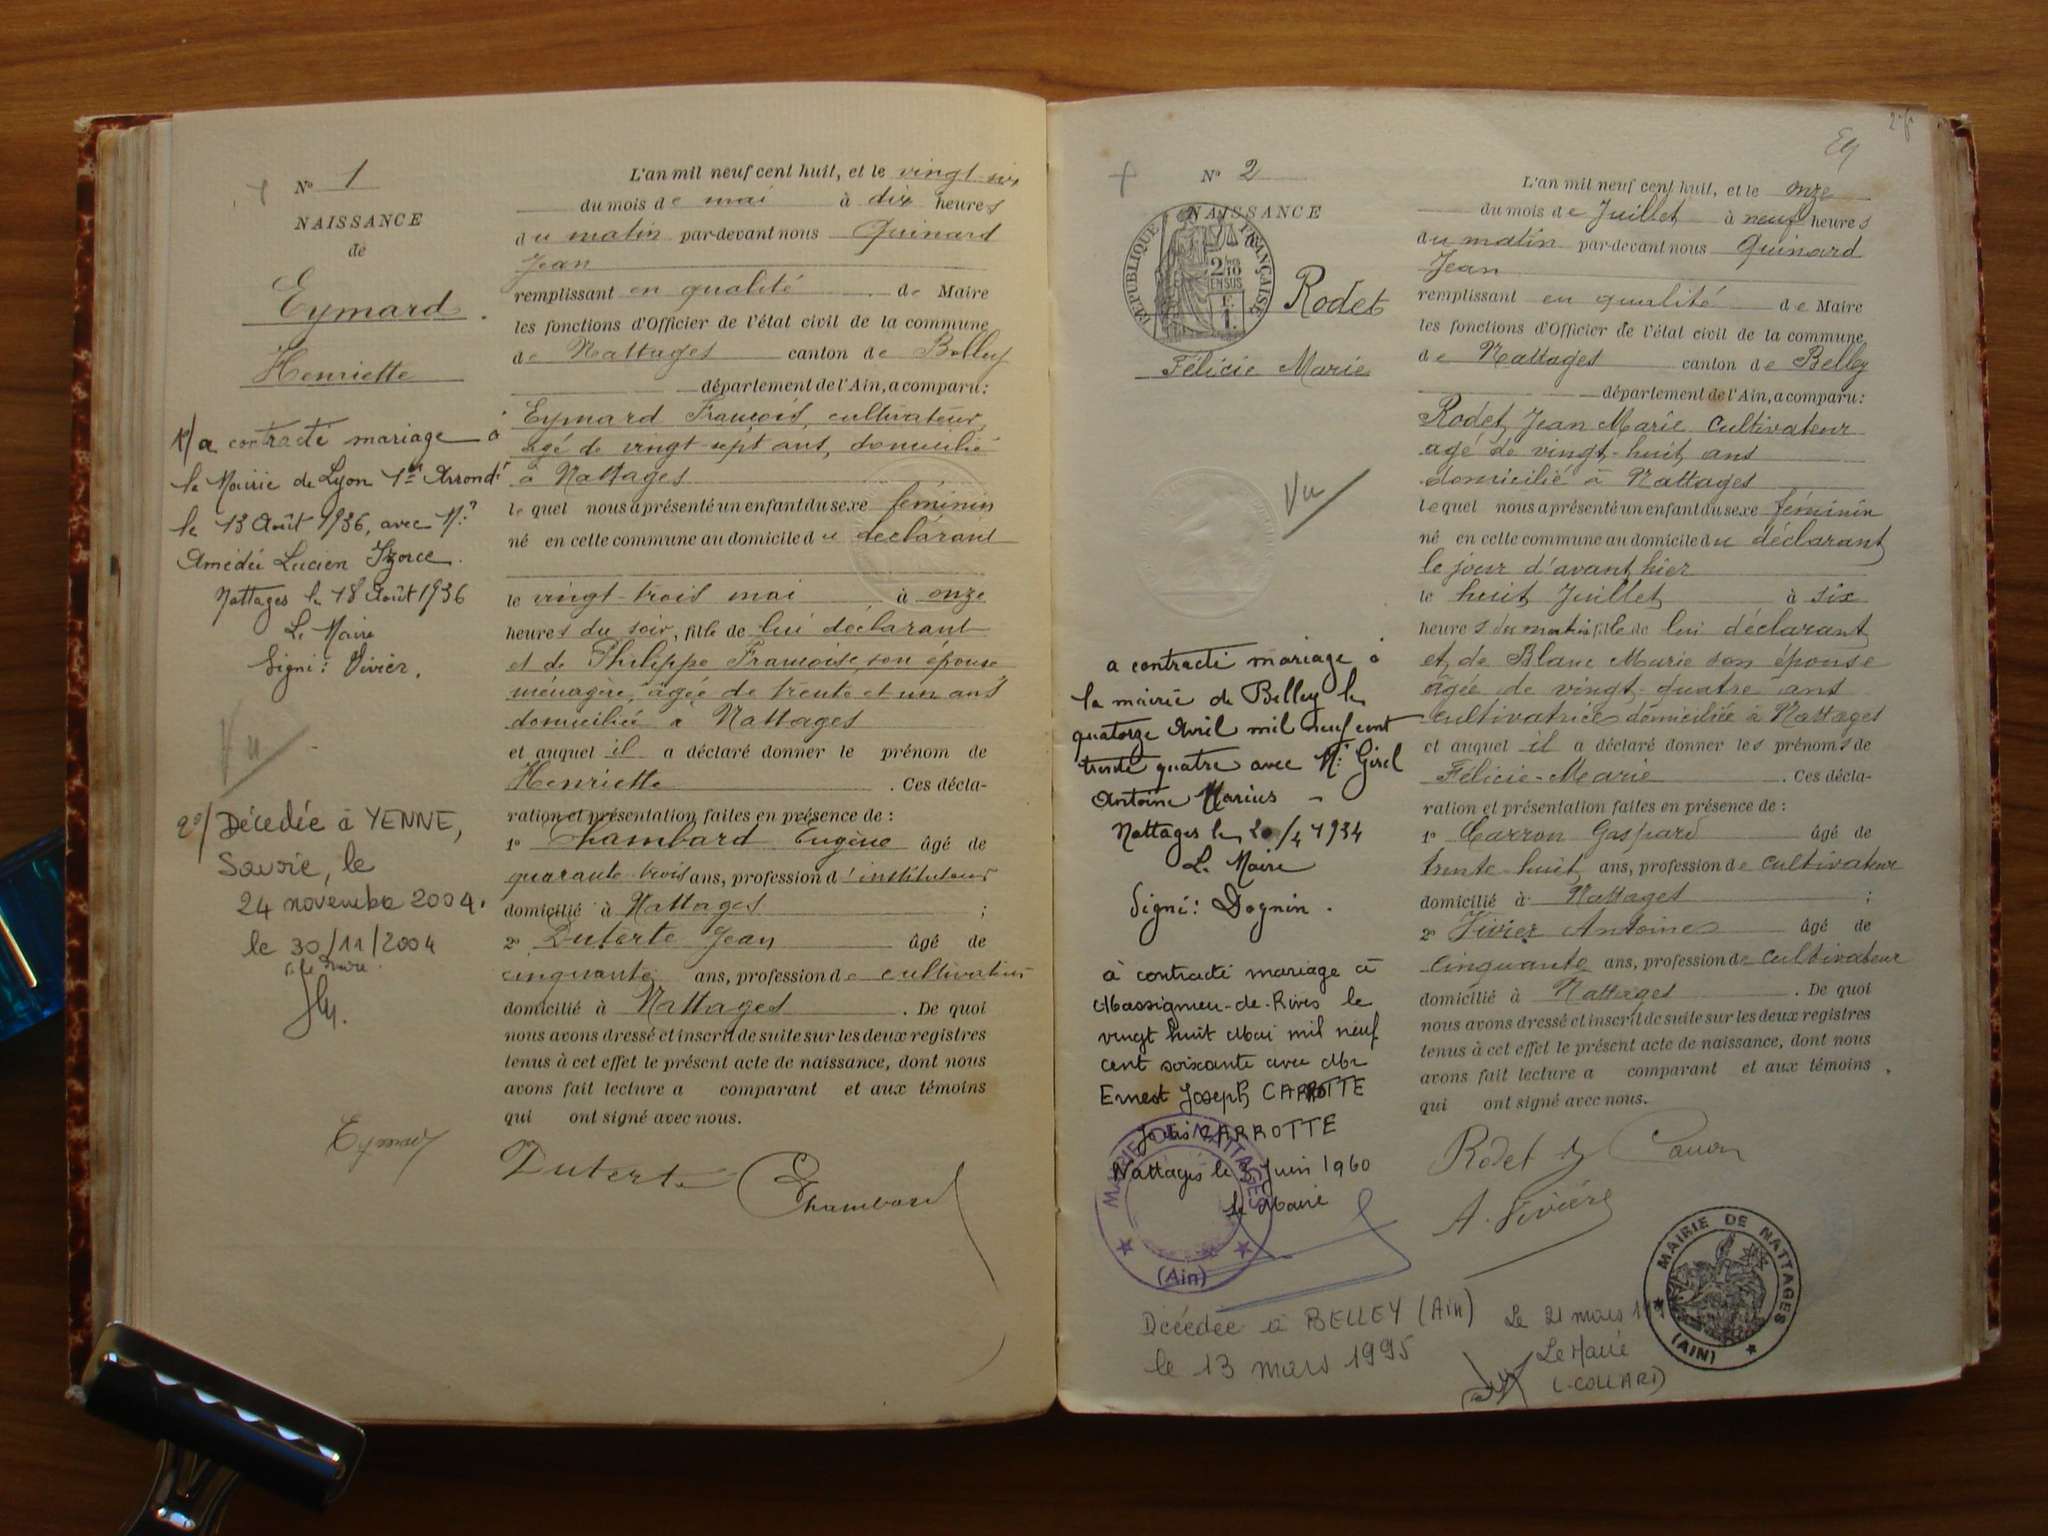 N° 1
NAISSANCE
de
Eymard
Henriette
1°/ a contracté mariage à
la Mairie de Lyon 1er Arrondt
le 13 Août 1936, avec Mr
Amédée Lucien Izorce.
Nattages le 18 Août 1936
Le Maire
Signé: Vivier.
Vu
2°/ Décédée à YENNE,
Savoie, le
24 novembre 2004.
le 30/11/2004
Le Maire
L'an mil neuf cent huit, et le vingt-six
du mois de mai à dix heures
du matin par-devant nous Quinard
Jean
remplissant en qualité de Maire
les fonctions d'Officier de l'état civil de la commune
de Nattages canton de Belley
département de l'Ain, a comparu:
Eymard François, cultivateur,
âgé de vingt-sept ans, domicilié
à Nattages
lequel nous a présenté un enfant du sexe féminin
né en cette commune au domicile du déclarant
le vingt-trois mai à onze
heures du soir, fille de lui déclarant
et de Philippe Françoise, son épouse,
ménagère, âgée de trente et un ans
domiciliée à Nattages
et auquel il a déclaré donner le prénom de
Henriette. Ces décla-
ration et présentation faites en présence de :
1° Chambard Eugène âgé de
quarante-trois ans, profession d'instituteur
domicilié à Nattages ;
2° Duterte Jean âgé de
cinquante ans, profession de cultivateur
domicilié à Nattages. De quoi
nous avons dressé et inscrit de suite sur les deux registres
tenus à cet effet le présent acte de naissance, dont nous
avons fait lecture a comparant et aux témoins
qui ont signé avec nous.
Eymard
Duterte Chambard
N° 2
NAISSANCE
RÉPUBLIQUE FRANÇAISE
2/10 EN SUS
Rodet
Félicie Marie
Vu
a contracté mariage à
la mairie de Belley le
quatorze Avril mil neuf cent
trente quatre avec Mr Girel
Antoine Marius –
Nattages le 20/4 1934
Le Maire
Signé: Dognin.
à contracté mariage à
Massignieu-de-Rives le
vingt huit Mai mil neuf
cent soixante avec Mr
Ernest Joseph CARROTTE
CARROTTE
Nattages le 3 Juin 1960
le Maire
MAIRIE DE NATTAGES
(Ain)
Décédée à BELLEY (Ain)
le 13 mars 1995
Le 21 mars
Le Maire
(COLLARD)
MAIRIE DE NATTAGES
(AIN)
L'an mil neuf cent huit, et le onze
du mois de Juillet à neuf heures
du matin par-devant nous Quinard
Jean
remplissant en qualité de Maire
les fonctions d'Officier de l'état civil de la commune
de Nattages canton de Belley
département de l'Ain, a comparu:
Rodet Jean Marie cultivateur
agé de vingt-huit ans
domicilié à Nattages
lequel nous a présenté un enfant du sexe féminin
né en cette commune au domicile du déclarant
le jour d'avant hier
le huit Juillet à six
heures du matin fille de lui déclarant
et de Blanc Marie son épouse
âgée de vingt-quatre ans
cultivatrice domiciliée à Nattages
et auquel il a déclaré donner les prénoms de
Félicie-Marie. Ces décla-
ration et présentation faites en présence de :
1° Carron Gaspard âgé de
trente huit ans, profession de cultivateur
domicilié à Nattages ;
2° Vivier Antoine âgé de
cinquante ans, profession de cultivateur
domicilié à Nattages. De quoi
nous avons dressé et inscrit de suite sur les deux registres
tenus à cet effet le présent acte de naissance, dont nous
avons fait lecture a comparant et aux témoins
qui ont signé avec nous.
Rodet Caron
A. Vivière